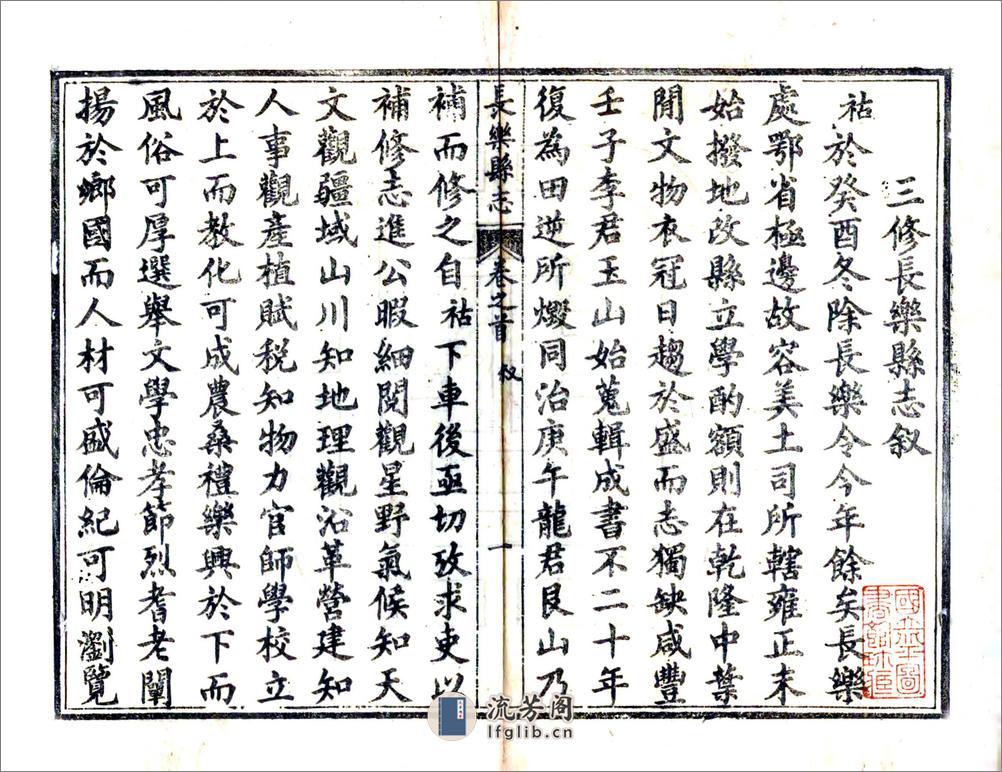 三修長樂縣志叙
祜於癸酉冬除長樂令今年餘矣長樂
處鄂省極邊故容美土司所轄雍正末
始撥地改縣立學酌額則在乾隆中葉
閒文物衣冠日趨於盛而志獨缺咸豐
壬子李君玉山始蒐輯成書不二十年
復為田逆所燬同治庚午龍君艮山乃
長樂縣志 卷之首 叙 一
補而修之自祜下車後亟切攷求吏以
補修志進公暇細閱觀星野氣候知天
文觀疆域山川知地理觀沿革營建知
人事觀產植賦稅知物力官師學校立
於上而教化可成農桑禮樂興於下而
風俗可厚選舉文學忠孝節烈耆老闡
揚於鄉國而人材可盛倫紀可明瀏覽
流芳阁
lfglib.cn